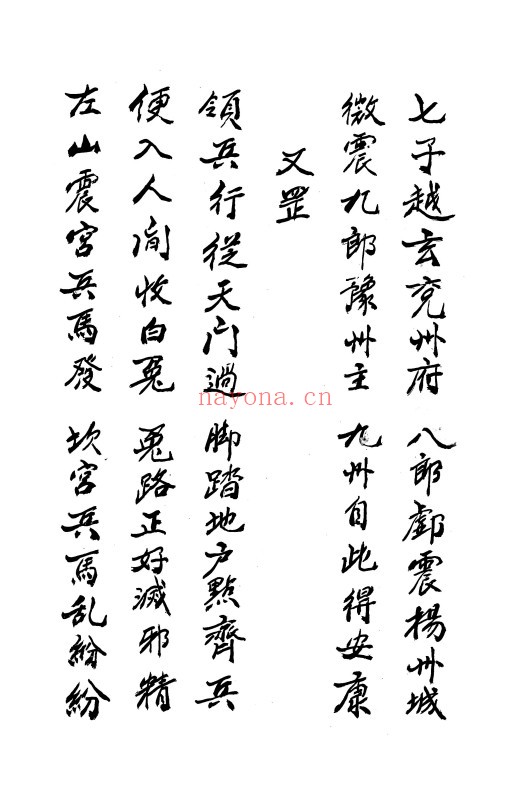 七子越玄兗州府　八郎鄅震揚州城
微震九郎豫州主　九州自此得安康
又罡
領兵行從天门過　脚踏地户點齊兵
便入人间收白兔　兔路正好滅邪精
左山震宮兵馬發　坎宮兵馬乱紛紛
nayona.cn